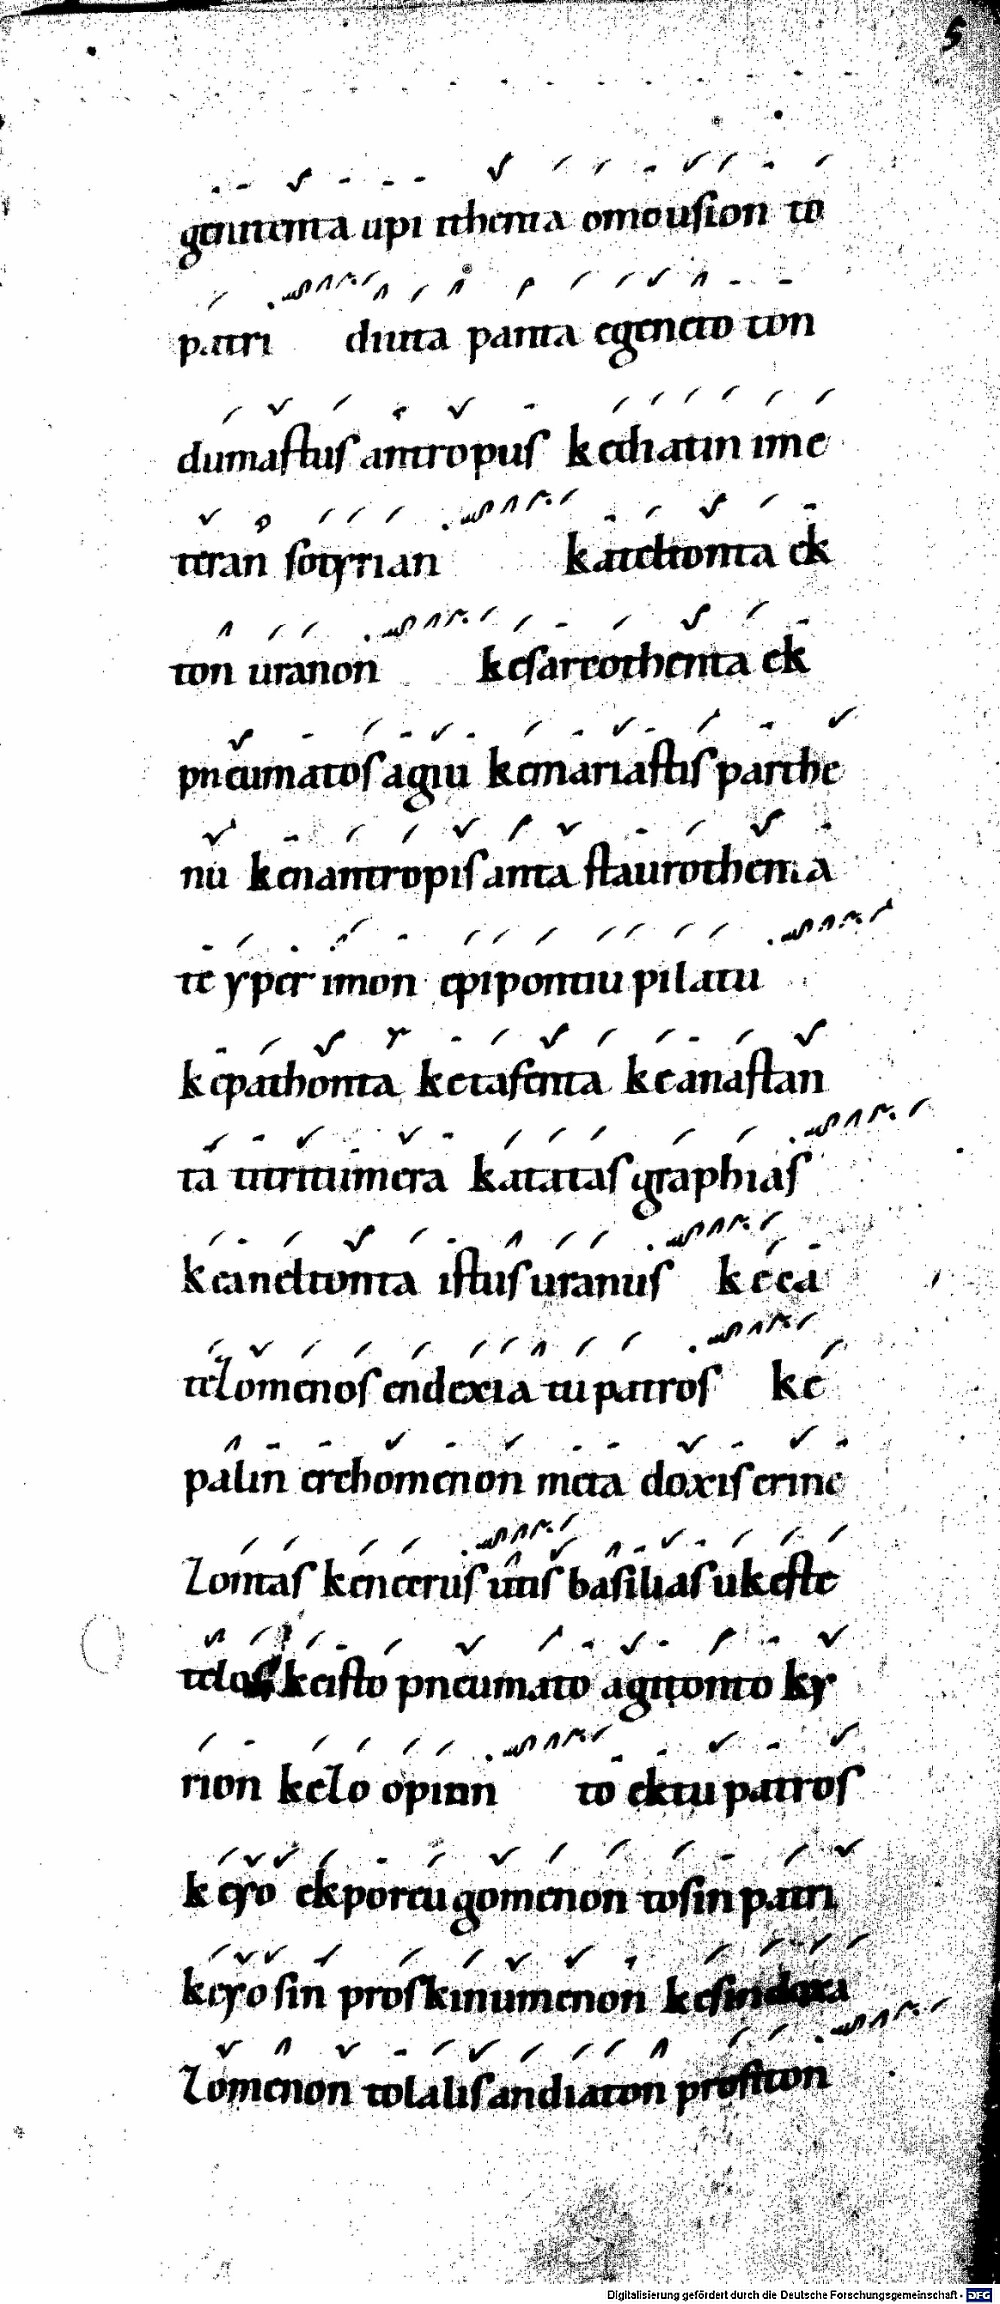 5
genitenta upi ithenta omousion to
patri diuta panta egeneto ton
dumastus antropus kedhatin ime
teran sotyrian kateltonta ek
ton uranon kesarcothenta ek
pneumatos agiu kemariastis parthe
nu kenantropisanta staurothenta
te yper imon epipontiu pilatu
kepathonta ketafenta keanastan
ta titritiimera katatas graphias
keaneltonta istus uranus ke ca
telomenos endexia tu patros ke
palin erchomenon meta doxis crine
Zontas kenecrus utis basilias ukeste
telos keisto pneumato agiton to ky
rion kelo opiun to ektu patros
keyo ekporeugomenon tosin patri
keyo sin proskinumenon kesindoxa
Zomenon tolalisandiaton profiton
Digitalisierung gefördert durch die Deutsche Forschungsgemeinschaft - DFG